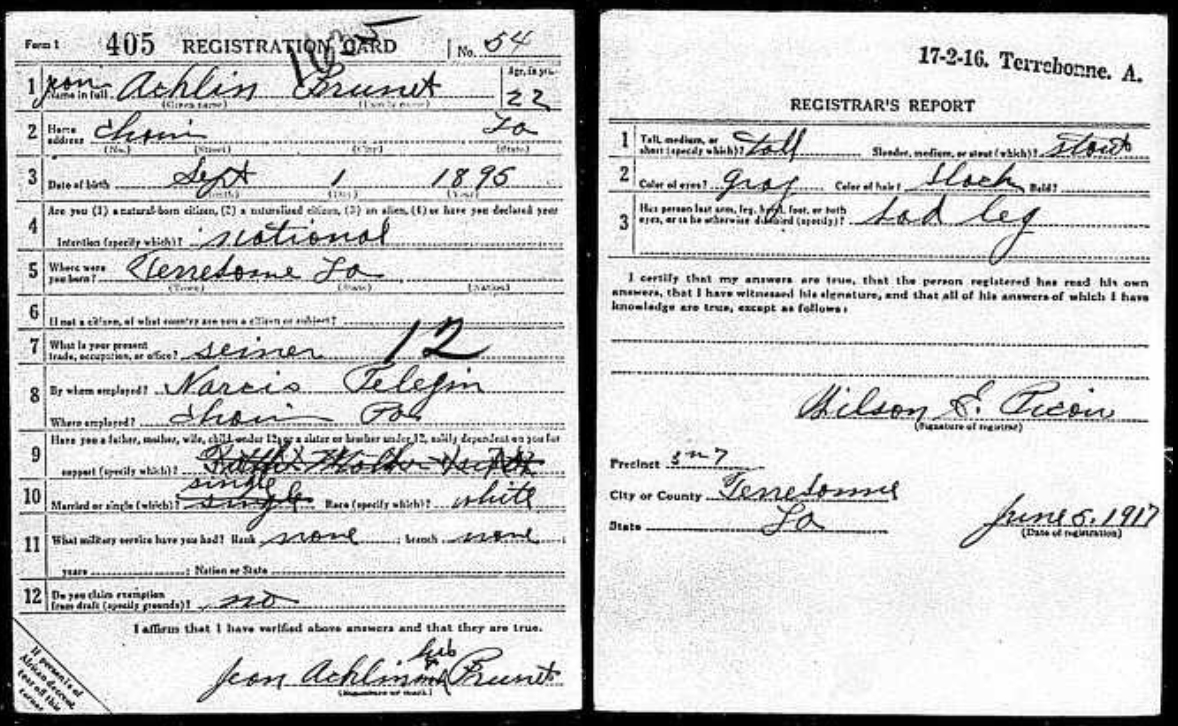 Form 1 405 REGISTRATION CARD No. 54
1 Jean Achlin Prunet Age, in yrs. 22
Name in full (Given name) (Family name)
2 Home address Choin La
(No.) (Street) (City) (State)
3 Date of birth Sept 1 1895
(Month) (Day) (Year)
4 Are you (1) a natural-born citizen, (2) a naturalized citizen, (3) an alien, (4) or have you declared your
intention (specify which)? national
5 Where were you born? Terrebonne La
(Town) (State) (Nation)
6 If not a citizen, of what country are you a citizen or subject?
7 What is your present trade, occupation, or office? seiner 12
8 By whom employed? Narcis
Where employed? Choin
9 Have you a father, mother, wife, child under 12, or a sister or brother under 12, solely dependent on you for
support (specify which)? Father Mother
single
10 Married or single (which)? single Race (specify which)? white
11 What military service have you had? Rank none ; branch none ;
years ; Nation or State
12 Do you claim exemption from draft (specify grounds)? no
I affirm that I have verified above answers and that they are true.
Jean Achlin Prunet
(Signature or mark)
If person is of African descent, tear off this corner
17-2-16. Terrebonne. A.
REGISTRAR'S REPORT
1 Tall, medium, or short (specify which)? tall Slender, medium, or stout (which)? stout
2 Color of eyes? gray Color of hair? black Bald?
3 Has person lost arm, leg, hand, foot, or both eyes, or is he otherwise disabled (specify)? bad leg
I certify that my answers are true, that the person registered has read his own
answers, that I have witnessed his signature, and that all of his answers of which I have
knowledge are true, except as follows:
Wilson J. Picou
(Signature of registrar)
Precinct 7
City or County Terrebonne
State La
June 5. 1917
(Date of registration)